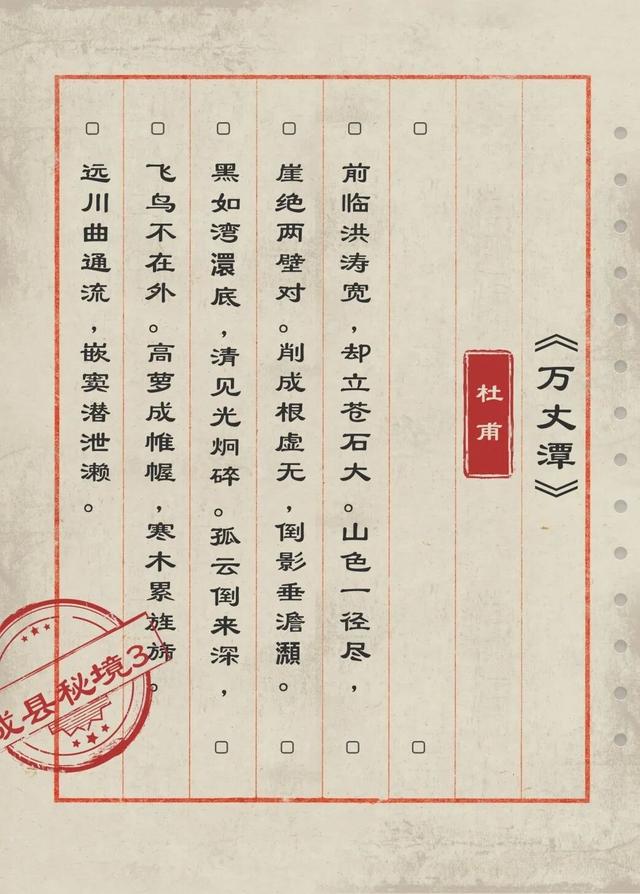 《万丈潭》
杜甫
前临洪涛宽，却立苍石大。山色一径尽，
崖绝两壁对。削成根虚无，倒影垂澹瀩。
黑如湾澴底，清见光炯碎。孤云倒来深，
飞鸟不在外。高萝成帷幄，寒木累旌旆。
远川曲通流，嵌窦潜泄濑。
成县秘境3